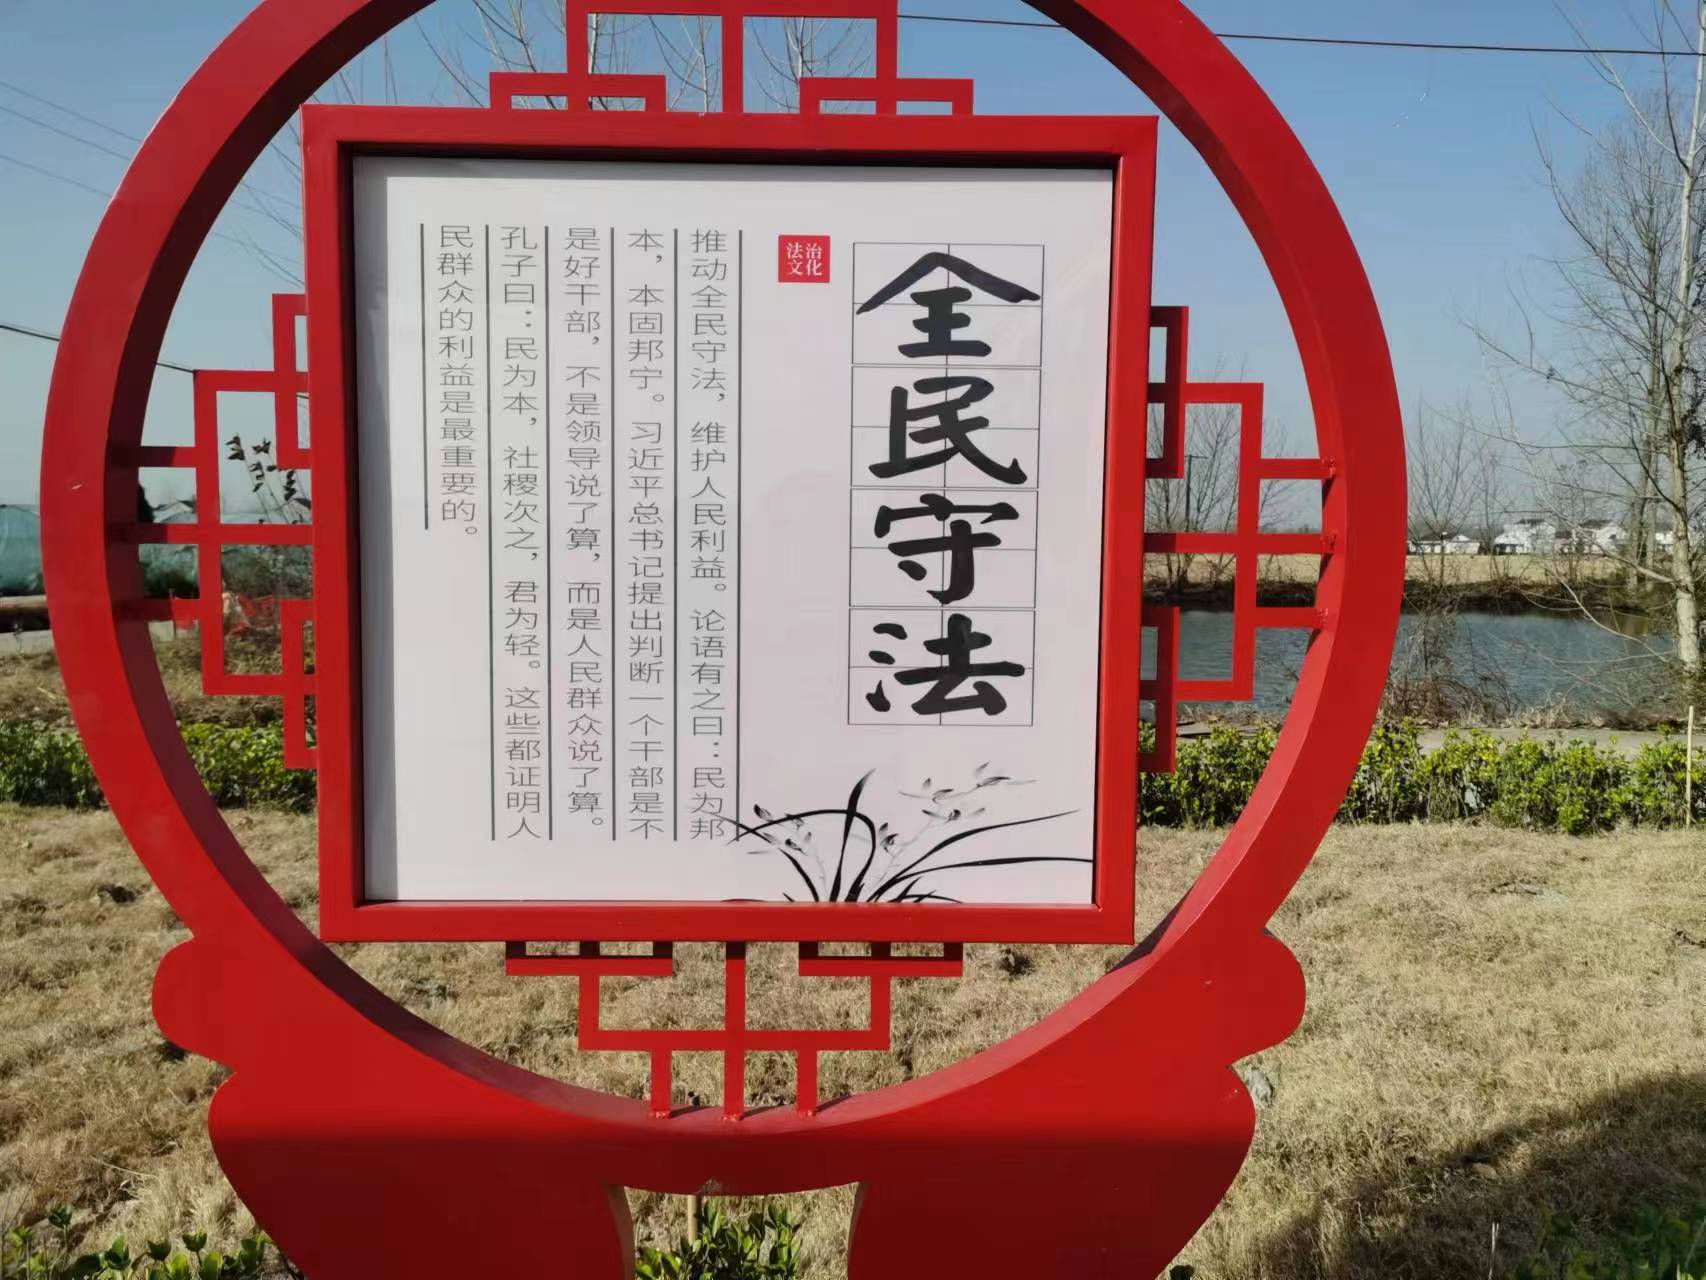 全民守法
法治
文化
推动全民守法，维护人民利益。论语有之曰：民为邦
本，本固邦宁。习近平总书记提出判断一个干部是不
是好干部，不是领导说了算，而是人民群众说了算。
孔子曰：民为本，社稷次之，君为轻。这些都证明人
民群众的利益是最重要的。